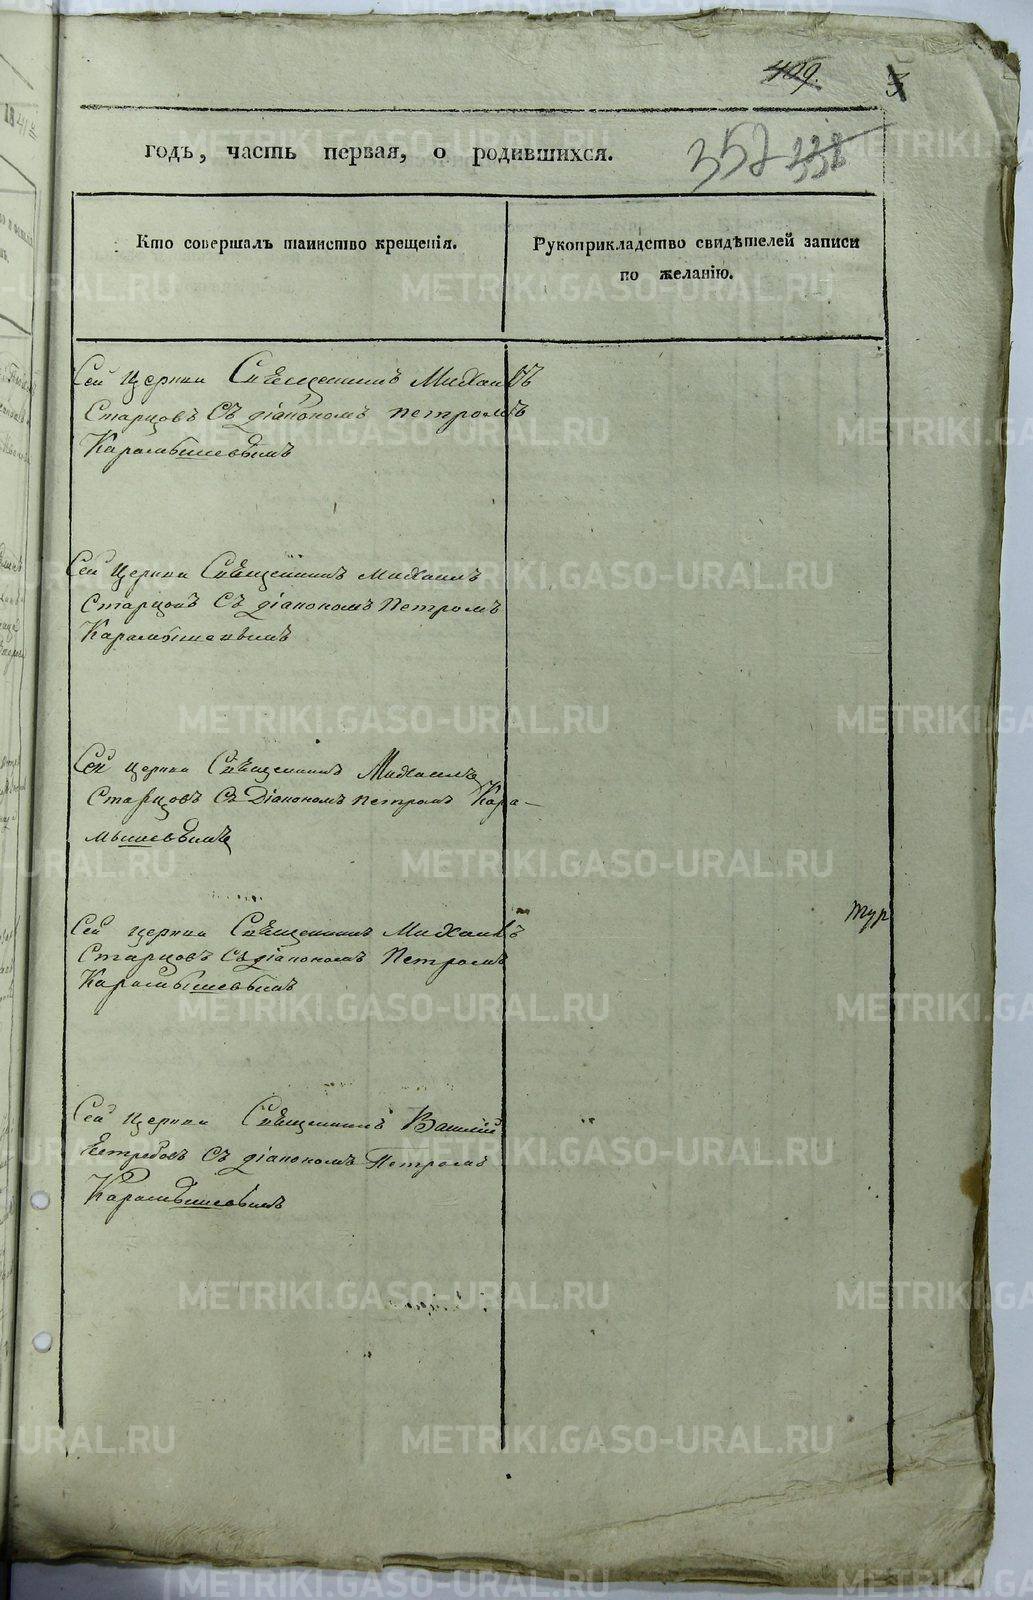 409.
352 338
годъ, часть первая, о родившихся.
Кто совершалъ таинство крещенія.
Рукоприкладство свидѣтелей записи
по желанію.
Сей Церкви Священникъ Михаилъ
Старцовъ Съ діакономъ Петромъ
Карамышевымъ
Сей Церкви Священникъ Михаилъ
Старцовъ Съ діакономъ Петромъ
Карамышевымъ
Сей Церкви Священникъ Михаилъ
Старцовъ Съ Діакономъ Петромъ Кара-
мышевымъ
тур
Сей Церкви Священникъ Михаилъ
Старцовъ Съ діакономъ Петромъ
Карамышевымъ
Сей Церкви Священникъ Василій
Ястребовъ Съ діакономъ Петромъ
Карамышевымъ
METRIKI.GASO-URAL.RU